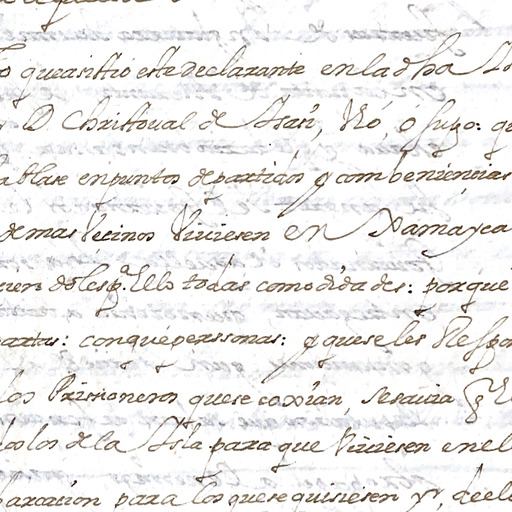 que asistio este declarante en la dha
D. Christoual de Isasi, Vió, ó supo: qu
ablase en puntos de partidos y combeniencias
demas Vecinos Viuiesen en Xamayca
doles pa. ello todas comodidades: porque
partes: con que perssonas: y que se les Respo
los Prisioneros que se coxian, se sauia
de la Isla para que Viuiesen en el
para los que se quisiesen yr, de el